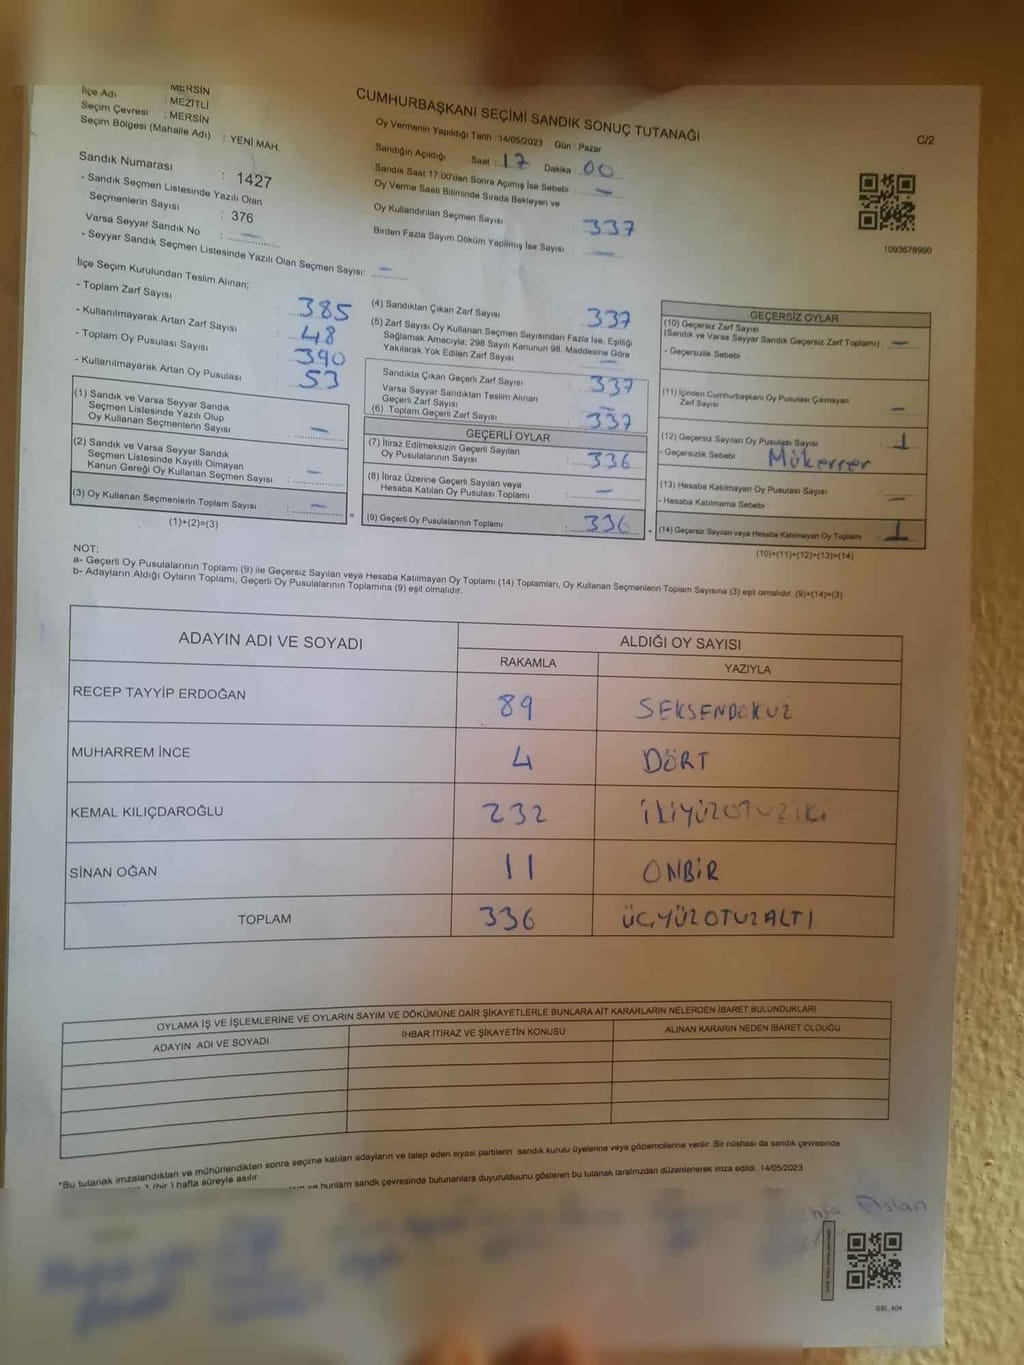 MERSİN
İlçe Adı : MEZİTLİ
Seçim Çevresi : MERSİN
Seçim Bölgesi (Mahalle Adı) : YENİ MAH.
Sandık Numarası : 1427
- Sandık Seçmen Listesinde Yazılı Olan
Seçmenlerin Sayısı : 376
Varsa Seyyar Sandık No : —
- Seyyar Sandık Seçmen Listesinde Yazılı Olan Seçmen Sayısı: —
CUMHURBAŞKANI SEÇİMİ SANDIK SONUÇ TUTANAĞI
C/2
Oy Vermenin Yapıldığı Tarih : 14/05/2023 Gün : Pazar
Sandığın Açıldığı Saat : 17 Dakika : 00
Sandık Saat 17:00'den Sonra Açımış İse Sebebi : —
Oy Verme Saati Bitiminde Sırada Bekleyen ve
Oy Kullandırılan Seçmen Sayısı : 337
Birden Fazla Sayım Döküm Yapılmış İse Sayısı : —
1093678990
İlçe Seçim Kurulundan Teslim Alınan;
- Toplam Zarf Sayısı : 385
- Kullanılmayarak Artan Zarf Sayısı : 48
- Toplam Oy Pusulası Sayısı : 390
- Kullanılmayarak Artan Oy Pusulası : 53
(1) Sandık ve Varsa Seyyar Sandık
Seçmen Listesinde Yazılı Olup
Oy Kullanan Seçmenlerin Sayısı : —
(2) Sandık ve Varsa Seyyar Sandık
Seçmen Listesinde Kayıtlı Olmayan
Kanun Gereği Oy Kullanan Seçmen Sayısı : —
(3) Oy Kullanan Seçmenlerin Toplam Sayısı : —
(1)+(2)=(3)
=
(4) Sandıktan Çıkan Zarf Sayısı : 337
(5) Zarf Sayısı Oy Kullanan Seçmen Sayısından Fazla İse, Eşitliği
Sağlamak Amacıyla; 298 Sayılı Kanunun 98. Maddesine Göre
Yakılarak Yok Edilen Zarf Sayısı : —
Sandıkta Çıkan Geçerli Zarf Sayısı : 337
Varsa Seyyar Sandıktan Teslim Alınan
Geçerli Zarf Sayısı : —
(6) Toplam Geçerli Zarf Sayısı : 337
GEÇERLİ OYLAR
(7) İtiraz Edilmeksizin Geçerli Sayılan
Oy Pusulalarının Sayısı : 336
(8) İtiraz Üzerine Geçerli Sayılan veya
Hesaba Katılan Oy Pusulası Toplamı : —
(9) Geçerli Oy Pusulalarının Toplamı : 336
+
GEÇERSİZ OYLAR
(10) Geçersiz Zarf Sayısı
(Sandık ve Varsa Seyyar Sandık Geçersiz Zarf Toplamı) : —
- Geçersizlik Sebebi
(11) İçinden Cumhurbaşkanı Oy Pusulası Çıkmayan
Zarf Sayısı : —
(12) Geçersiz Sayılan Oy Pusulası Sayısı : 1
- Geçersizlik Sebebi : Mükerrer
(13) Hesaba Katılmayan Oy Pusulası Sayısı : —
- Hesaba Katılmama Sebebi :
(14) Geçersiz Sayılan veya Hesaba Katılmayan Oy Toplamı : 1
(10)+(11)+(12)+(13)=(14)
NOT:
a- Geçerli Oy Pusulalarının Toplamı (9) ile Geçersiz Sayılan veya Hesaba Katılmayan Oy Toplamı (14) Toplamları, Oy Kullanan Seçmenlerin Toplam Sayısına (3) eşit olmalıdır. (9)+(14)=(3)
b- Adayların Aldığı Oyların Toplamı, Geçerli Oy Pusulalarının Toplamına (9) eşit olmalıdır.
ADAYIN ADI VE SOYADI ALDIĞI OY SAYISI
RAKAMLA YAZIYLA
RECEP TAYYİP ERDOĞAN 89 SEKSENDOKUZ
MUHARREM İNCE 4 DÖRT
KEMAL KILIÇDAROĞLU 232 İKİYÜZOTUZİKİ
SİNAN OĞAN 11 ONBİR
TOPLAM 336 ÜÇYÜZOTUZALTI
OYLAMA İŞ VE İŞLEMLERİNE VE OYLARIN SAYIM VE DÖKÜMÜNE DAİR ŞİKAYETLERLE BUNLARA AİT KARARLARIN NELERDEN İBARET BULUNDUKLARI
ADAYIN ADI VE SOYADI İHBAR İTİRAZ VE ŞİKAYETİN KONUSU ALINAN KARARIN NEDEN İBARET OLDUĞU
*Bu tutanak imzalandıktan ve mühürlendikten sonra seçime katılan adayların ve talep eden siyasi partilerin sandık kurulu üyelerine veya gözlemcilerine verilir. Bir nüshası da sandık çevresinde
1 (bir ) hafta süreyle asılır.
ve bunların sandık çevresinde bulunanlara duyurulduunu gösteren bu tutanak tarafımızdan düzenlenerek imza edildi. 14/05/2023
Aslan
SSI_404